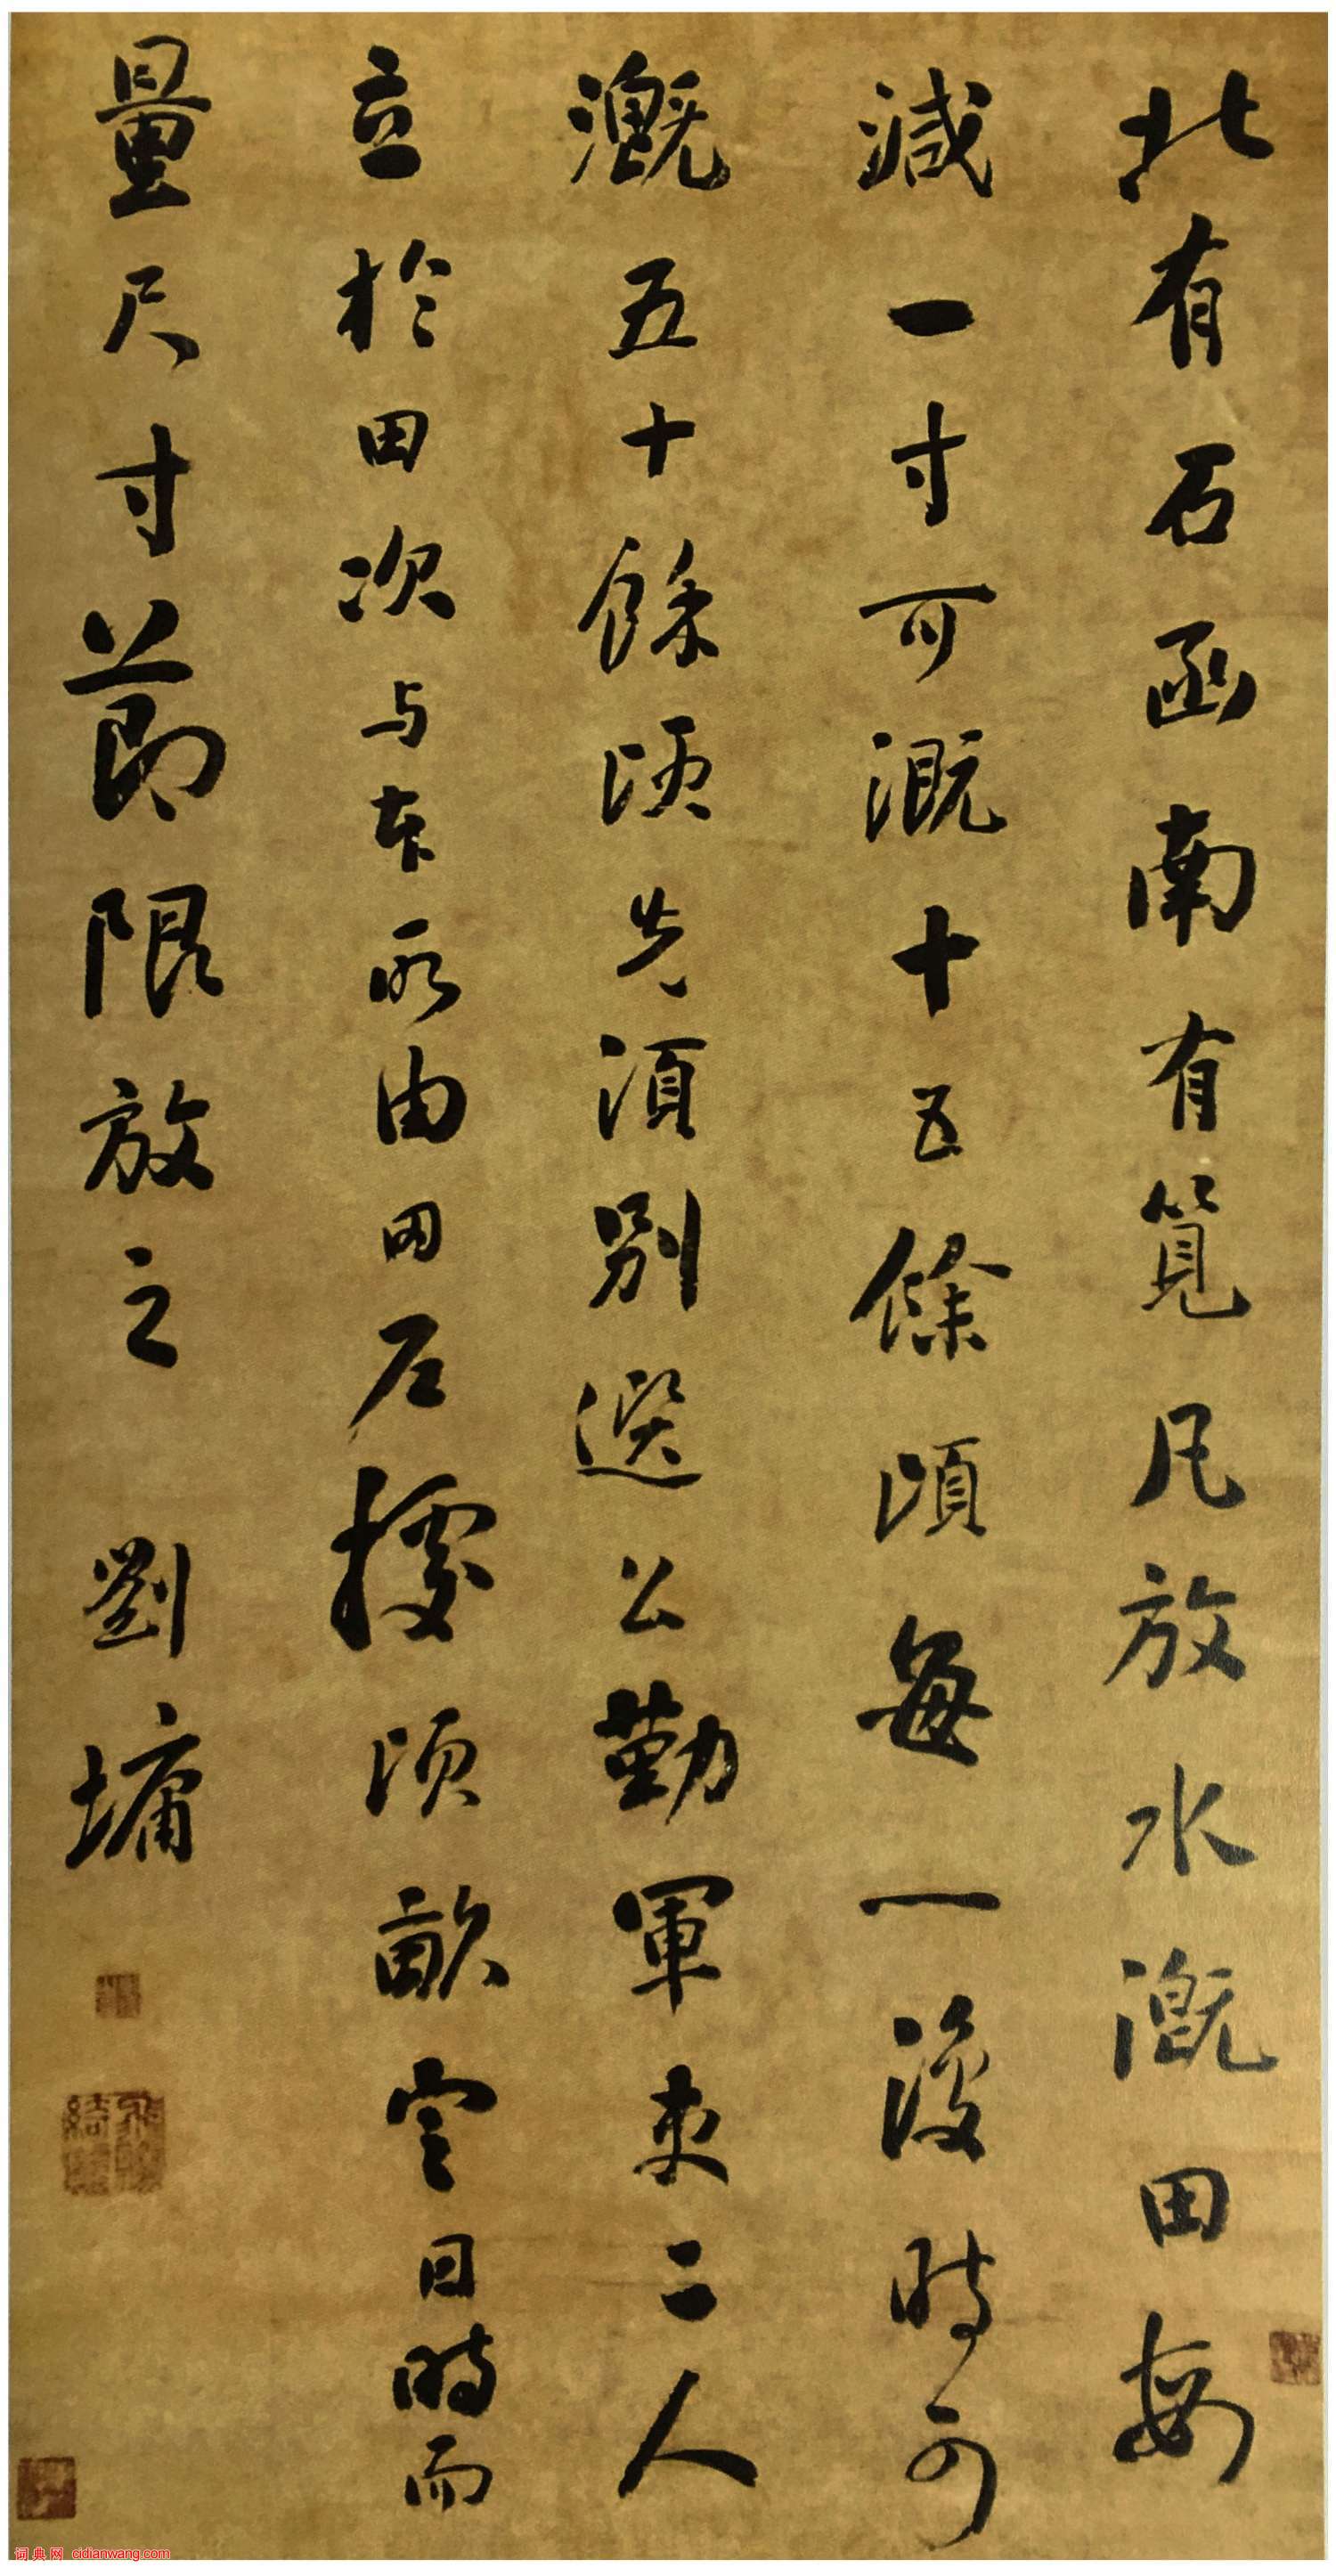 北有石函南有筧凡放水溉田每
減一寸可溉十五餘頃每一復時可
溉五十餘頃先須別選公勤軍吏二人
立於田次与本所由田戶據頃畝定日時而
量尺寸節限放之 劉墉
词典网 cidianwang.com